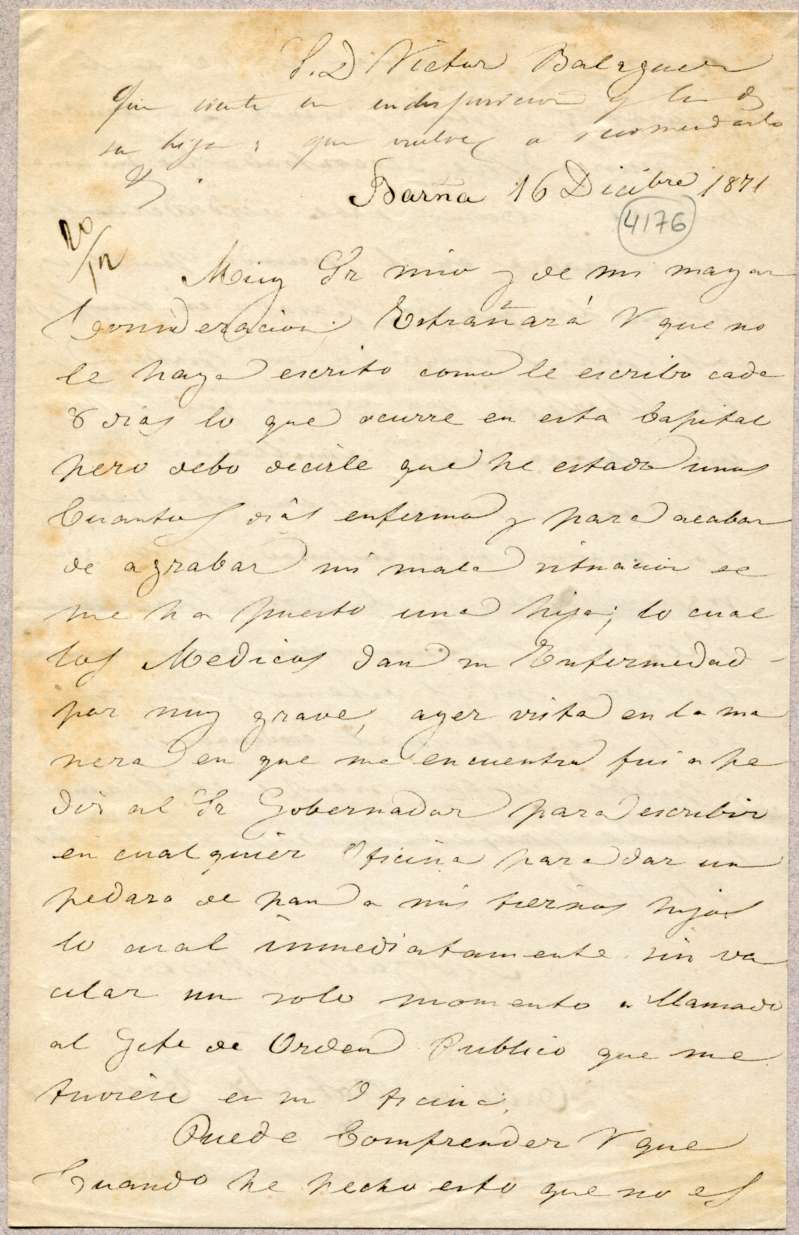 S. D. Victor Balaguer
Que siente su indisposicion y la de
su hija y que vuelve a recomendarlo
Barna 16 Dicibre 1871
4176
20/12
Muy Sr mio y de mi mayor
Consideracion: Estrañará V que no
le haya escrito como le escribo cada
8 dias lo que ocurre en esta Capital
pero debo decirle que he estado unos
Cuantos dias enfermo y para acabar
de agrabar mi mala situacion se
me ha puesto una hija; lo cual
los Medicos dan su Enfermedad
por muy grave, ayer vista en la ma
nera en que me encuentro fui a pe
dir al Sr Gobernador para escribir
en cualquier Oficina para dar un
pedazo de pan a mis tiernos hijos
lo cual inmediatamente sin va
cilar un solo momento a llamado
al Gefe de Orden Publico que me
tuviese en su Oficina.
Puede Comprender V que
Cuando he hecho esto que no es